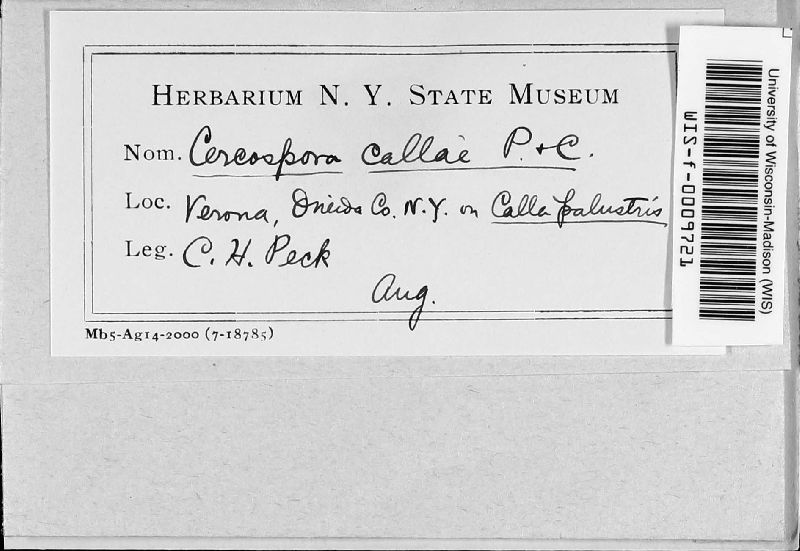 HERBARIUM N. Y. STATE MUSEUM
Nom. Cercospora callae P. + C.
Loc. Verona, Oneida Co. N.Y. on Calla palustris
Leg. C. H. Peck
Aug.
Mb5-Ag14-2000 (7-18785)
University of Wisconsin-Madison (WIS)
WIS-f-0009721